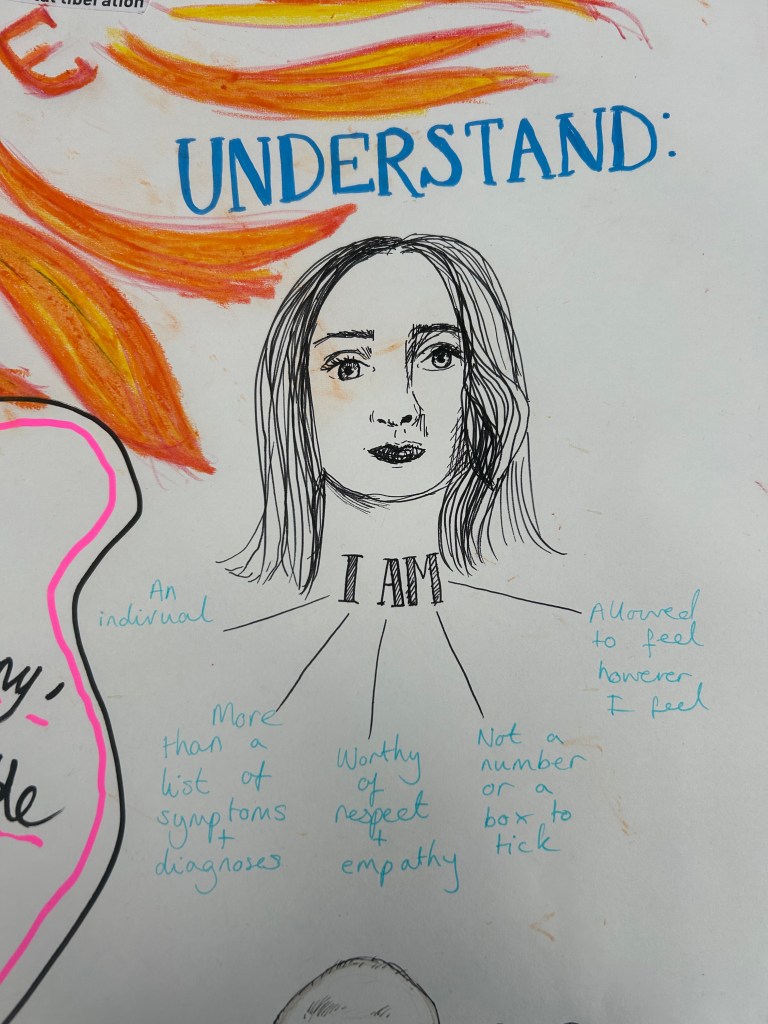 liberation
E
UNDERSTAND:
I AM
An
indirual
More
than a
list of
symptoms
+
diagnoses
Worthy
of
respect
+
empathy
Not a
number
or a
box to
tick
Allowed
to feel
however
I feel